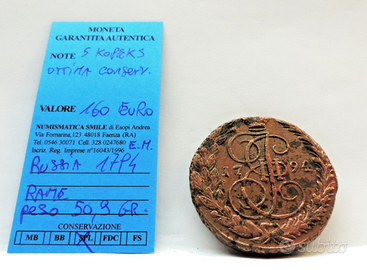 MONETA
GARANTITA AUTENTICA
NOTE 5 KOPEKS
OTTIMA CONSERV.
VALORE 160 EURO
NUMISMATICA SMILE di Esopi Andrea
Via Fornarina, 123 48018 Faenza (RA)
Tel. 0546 30071 Cell. 328 0247680
Iscriz. Reg. Imprese n°16043/1996
E.M.
RUSSIA 1794
RAME
peso 50,9 GR.
CONSERVAZIONE
MB BB SPL FDC FS
17 94
subito